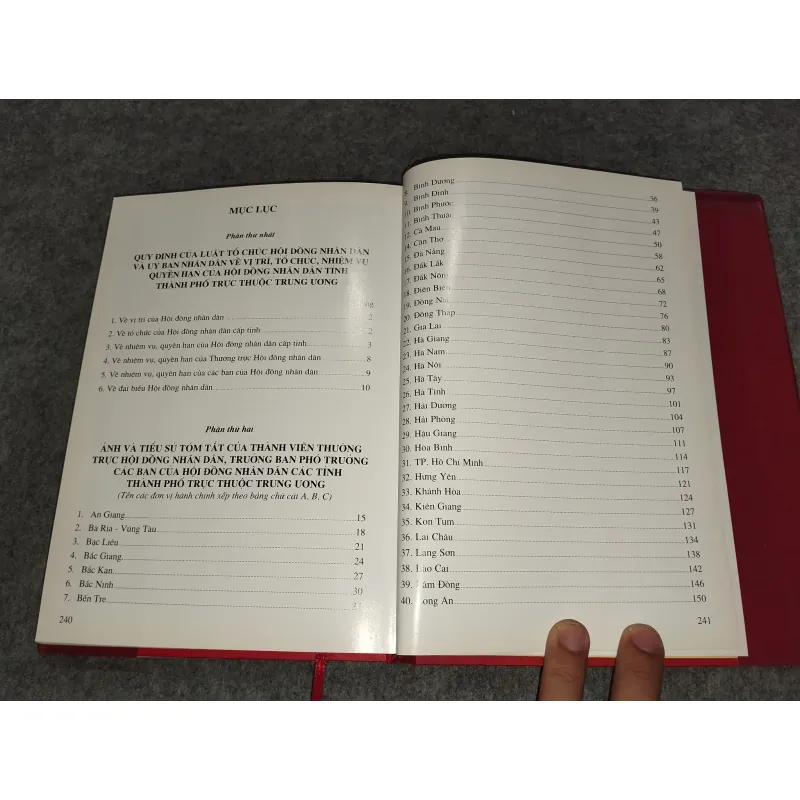 MỤC LỤC
Phần thứ nhất
QUY ĐỊNH CỦA LUẬT TỔ CHỨC HỘI ĐỒNG NHÂN DÂN
VÀ UỶ BAN NHÂN DÂN VỀ VỊ TRÍ, TỔ CHỨC, NHIỆM VỤ
QUYỀN HẠN CỦA HỘI ĐỒNG NHÂN DÂN TỈNH
THÀNH PHỐ TRỰC THUỘC TRUNG ƯƠNG
1. Về vị trí của Hội đồng nhân dân 2
2. Về tổ chức của Hội đồng nhân dân cấp tỉnh 2
3. Về nhiệm vụ, quyền hạn của Hội đồng nhân dân cấp tỉnh 3
4. Về nhiệm vụ, quyền hạn của Thường trực Hội đồng nhân dân 8
5. Về nhiệm vụ, quyền hạn của các ban của Hội đồng nhân dân 9
6. Về đại biểu Hội đồng nhân dân 10
Phần thứ hai
ẢNH VÀ TIỂU SỬ TÓM TẮT CỦA THÀNH VIÊN THƯỜNG
TRỰC HỘI ĐỒNG NHÂN DÂN, TRƯỞNG BAN PHÓ TRƯỞNG
CÁC BAN CỦA HỘI ĐỒNG NHÂN DÂN CÁC TỈNH
THÀNH PHỐ TRỰC THUỘC TRUNG ƯƠNG
(Tên các đơn vị hành chính xếp theo bảng chữ cái A, B, C)
1. An Giang 15
2. Bà Rịa - Vũng Tàu 18
3. Bạc Liêu 21
4. Bắc Giang 24
5. Bắc Kạn 27
6. Bắc Ninh 30
7. Bến Tre
240
8. Bình Dương 36
9. Bình Định 39
10. Bình Phước 43
11. Bình Thuận 47
12. Cà Mau 50
14. Cần Thơ 58
15. Đà Nẵng 62
16. Đắk Lắk 65
17. Đắk Nông 68
18. Điện Biên 72
19. Đồng Nai 76
20. Đồng Tháp 80
21. Gia Lai 83
22. Hà Giang 87
23. Hà Nam 90
24. Hà Nội 93
25. Hà Tây 97
26. Hà Tĩnh 101
27. Hải Dương 104
28. Hải Phòng 107
29. Hậu Giang 111
30. Hòa Bình 114
31. TP. Hồ Chí Minh 117
32. Hưng Yên 121
33. Khánh Hòa 124
34. Kiên Giang 127
35. Kon Tum 131
36. Lai Châu 134
37. Lạng Sơn 138
38. Lào Cai 142
39. Lâm Đồng 146
40. Long An 150
241